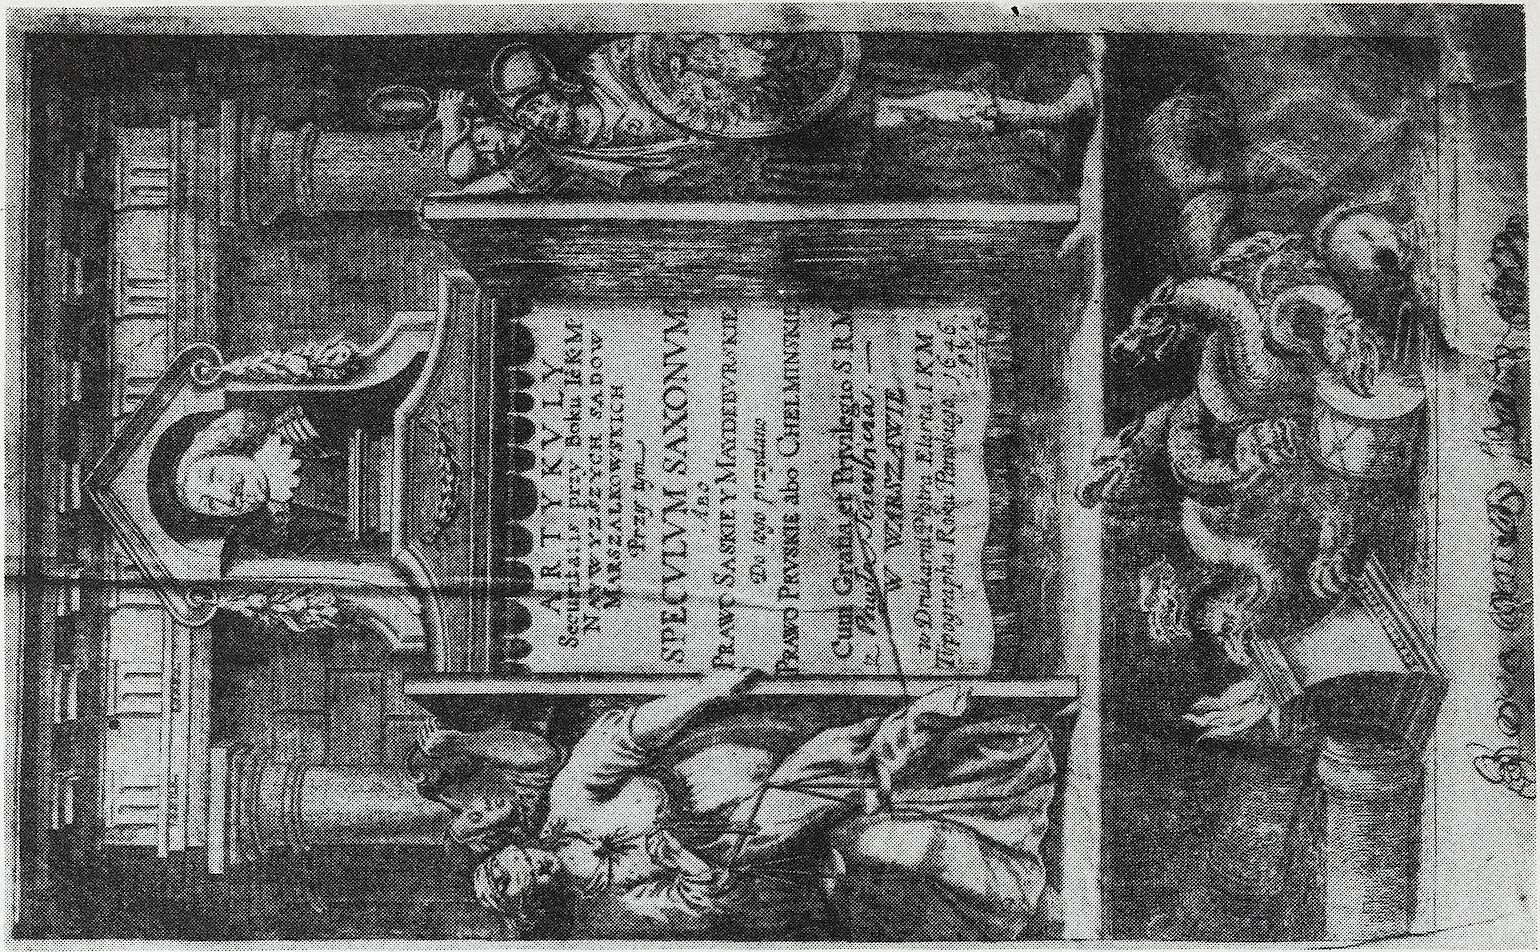 ARTYKVLY
Securitatis przy Boku I.K.M
NAYWYZSZYCH SADOW
MARSZALKOWSKICH
Przy tym
SPECVLVM SAXONVM
Abo
PRAWO SASKIE Y MAYDEBVRSKIE
Do tego przidano
PRAWO PRVSKIE abo CHELMINSKIE
Cum Gratia et Privilegio S R M
W WARSZAWIE
w Drukarni Piotra Elerta I K M
Typographa Roku Panskiego 1646.